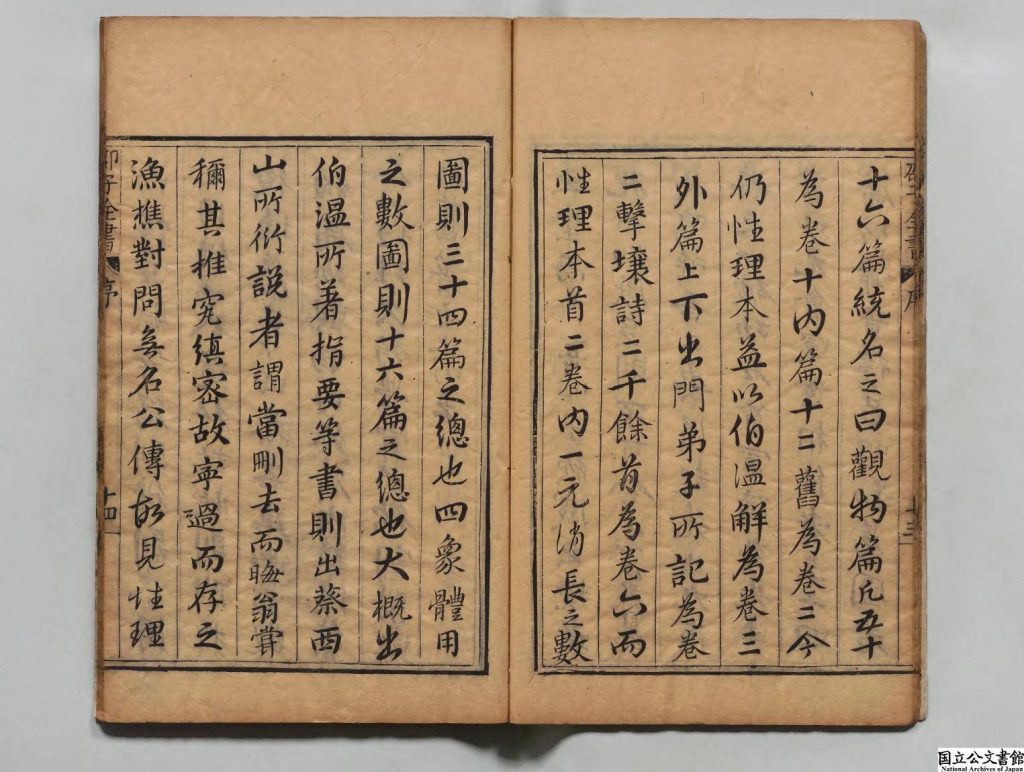 十六篇統名之曰觀物篇凡五十
為卷十內篇十二舊為卷二今
仍性理本益以伯溫解為卷三
外篇上下出門弟子所記為卷
二擊壤詩二千餘首為卷六而
性理本首二卷內一元消長之數
圖則三十四篇之總也四象體用
之數圖則十六篇之總也大概出
伯溫所著指要等書則出蔡西
山所衍說者謂當刪去而晦翁嘗
稱其推究縝密故寧過而存之
漁樵對問無名公傳故見性理
邵子全書
序
十四
国立公文書館
National Archives of Japan